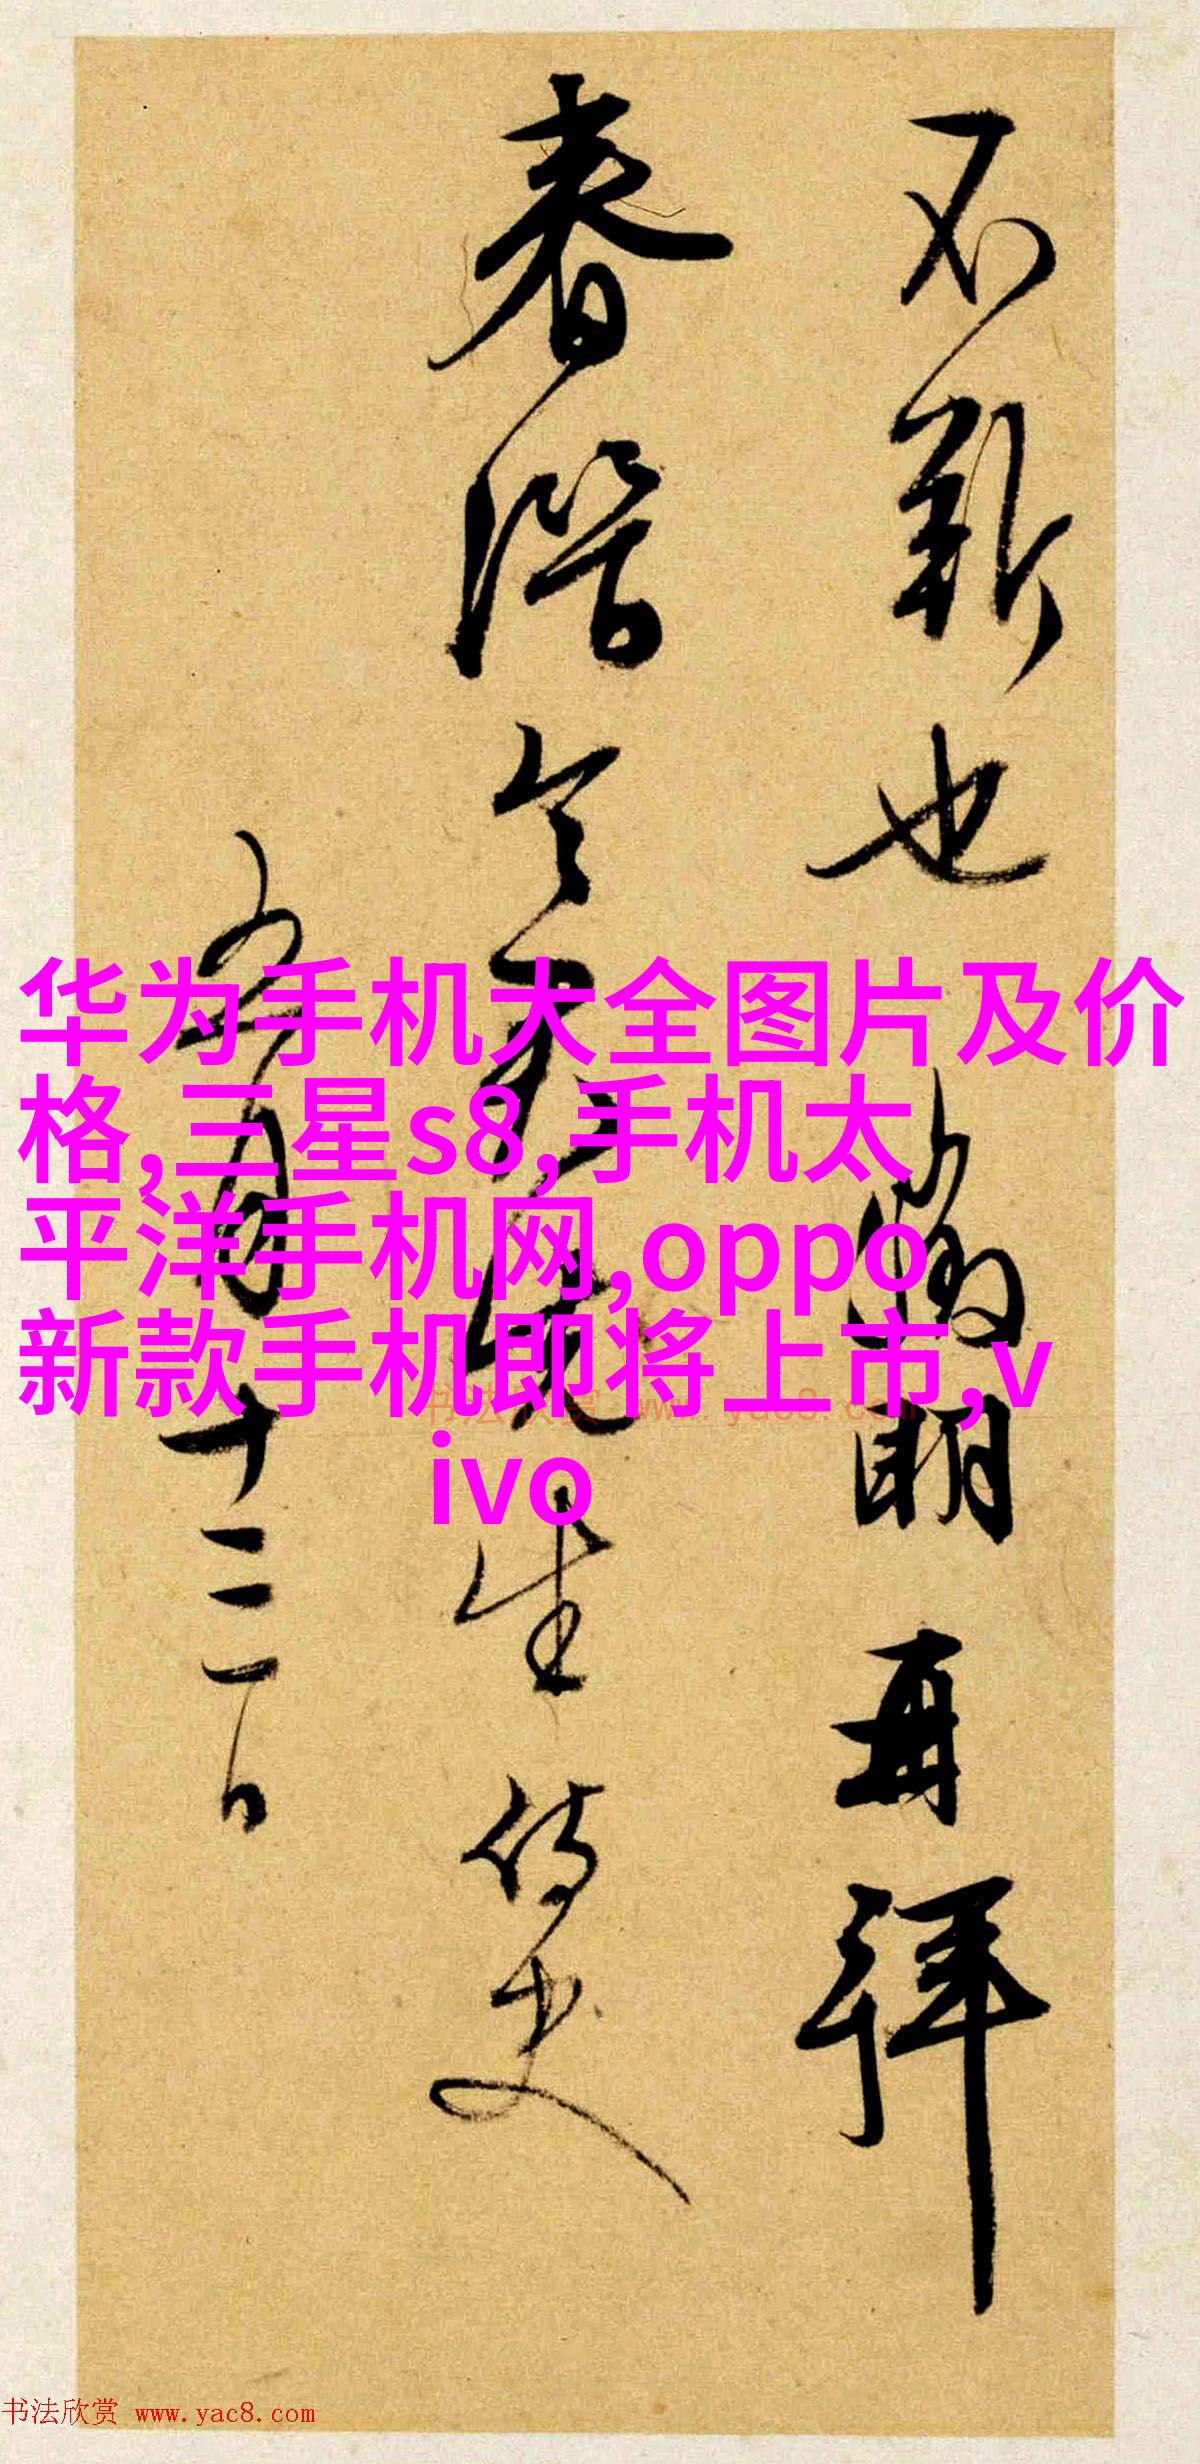 不鄙也 徵明 再拜
春潛 令君 先生 侍史
五月十三日
华为手机大全图片及价
格,三星s8,手机太
平洋手机网,oppo
新款手机即将上市,v
ivo
书法欣赏 www.yac8.com
书法欣赏 www.yac8.com